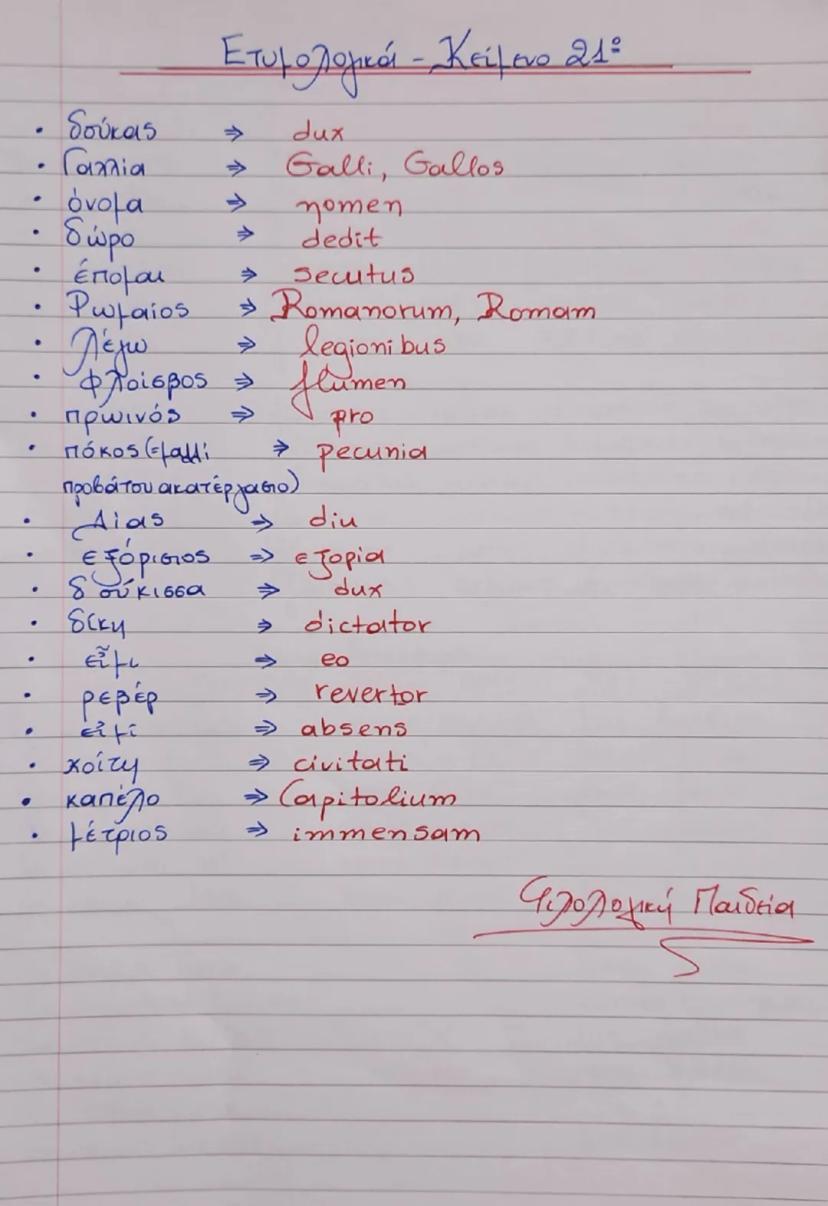 Ετυμολογικά - Κείμενο 21º
• δούκας ⇒ dux
• Γαλλία ⇒ Galli, Gallos
• όνομα ⇒ nomen
• δώρο ⇒ dedit
• έπομαι ⇒ secutus
• Ρωμαίος ⇒ Romanorum, Romam
• λέγω ⇒ legionibus
• φλοίσβος ⇒ flumen
• πρωινός ⇒ pro
• πόκος (=μαλλί ⇒ pecunia
προβάτου ακατέργαστο)
• Δίας ⇒ diu
• εξόριστος ⇒ εξορία
• δούκισσα ⇒ dux
• δίκη ⇒ dictator
• εἶμι ⇒ eo
• ρεβέρ ⇒ revertor
• εἰμί ⇒ absens
• κοίτη ⇒ civitati
• καπέλο ⇒ Capitolium
• μέτριος ⇒ immensam
Φιλολογική Παιδεία